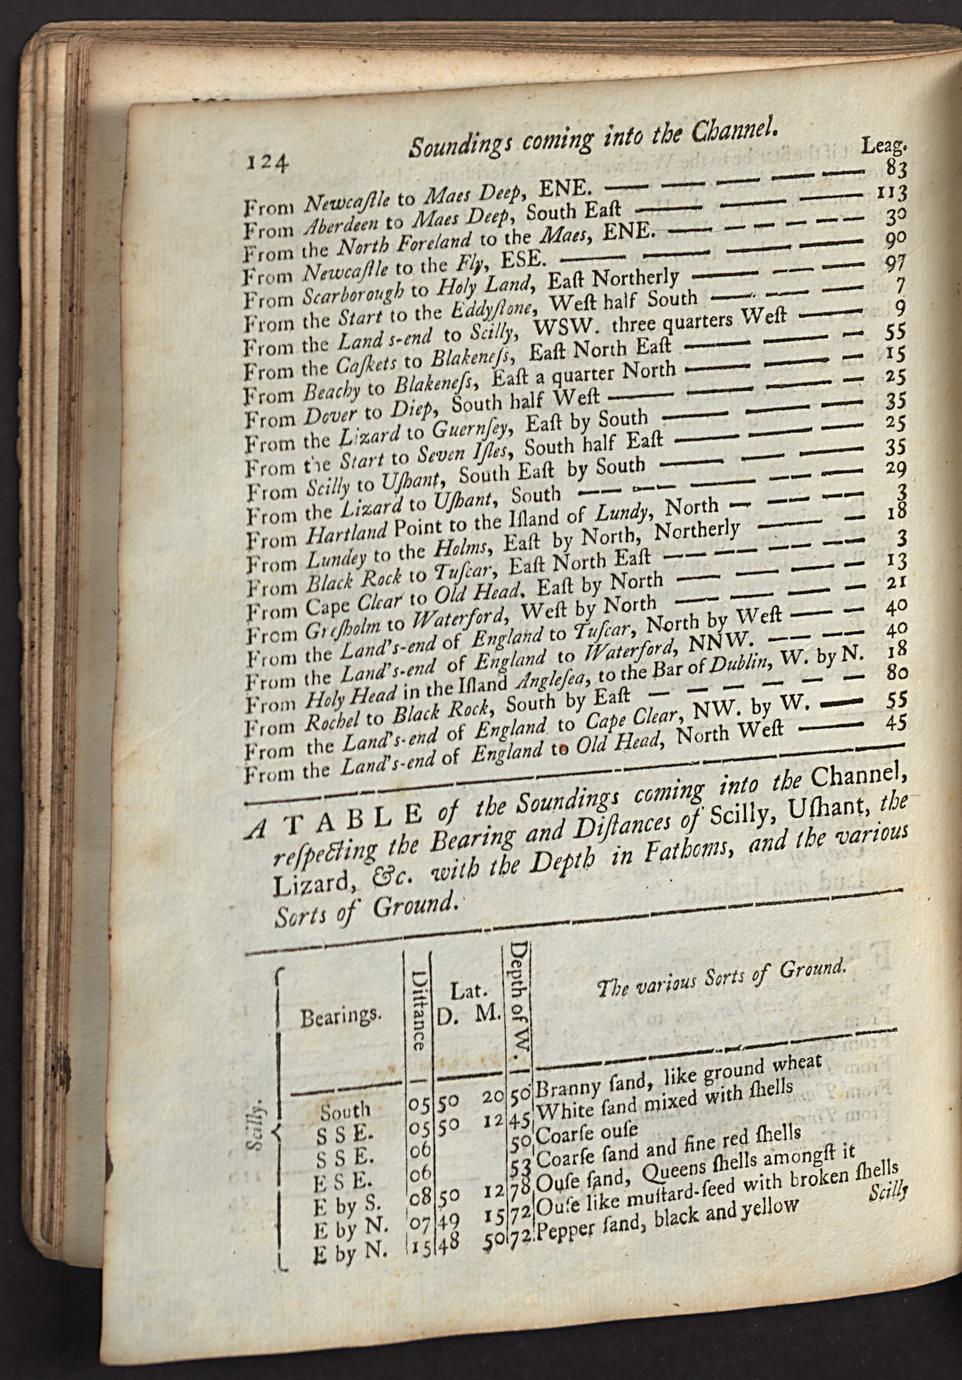 124 Soundings coming into the Channel.
Leag.
From Newcaſtle to Maes Deep, ENE. — — — — 83
From Aberdeen to Maes Deep, South Eaſt — — — 113
From the North Foreland to the Maes, ENE. — — — — 30
From Newcaſtle to the Fly, ESE. — — — — 90
From Scarborough to Holy Land, Eaſt Northerly — — — 97
From the Start to the Eddyſtone, Weſt half South — — — 7
From the Land s-end to Scilly, WSW. three quarters Weſt — 9
From the Caſkets to Blakeneſs, Eaſt North Eaſt — — — 55
From Beachy to Blakeneſs, Eaſt a quarter North — — — 15
From Dover to Diep, South half Weſt — — — — 25
From the Lizard to Guernſey, Eaſt by South — — — 35
From the Start to Seven Iſles, South half Eaſt — — — 25
From Scilly to Uſhant, South Eaſt by South — — — 35
From the Lizard to Uſhant, South — — — — — 29
From Hartland Point to the Iſland of Lundy, North — — — — 3
From Lundey to the Holms, Eaſt by North, Northerly — — 18
From Black Rock to Tuſcar, Eaſt North Eaſt — — — — — 3
From Cape Clear to Old Head, Eaſt by North — — — — 13
From Greſholm to Waterford, Weſt by North — — — — 21
From the Land's-end of England to Tuſcar, North by Weſt — — 40
From the Land's-end of England to Waterford, NNW. — — — 40
From Holy Head in the Iſland Angleſea, to the Bar of Dublin, W. by N. 18
From Rochel to Black Rock, South by Eaſt — — — — — — 80
From the Land's-end of England to Cape Clear, NW. by W. — 55
From the Land's-end of England to Old Head, North Weſt — 45
A TABLE of the Soundings coming into the Channel,
reſpecting the Bearing and Diſtances of Scilly, Uſhant, the
Lizard, &c. with the Depth in Fathoms, and the various
Sorts of Ground.
Bearings. Diſtance Lat. D. M. Depth of W. The various Sorts of Ground.
Scilly.
South 05 50 20 50 Branny ſand, like ground wheat
S S E. 05 50 12 45 White ſand mixed with ſhells
S S E. 06 50 Coarſe ouſe
E S E. 06 53 Coarſe ſand and fine red ſhells
E by S. 08 50 12 78 Ouſe ſand, Queens ſhells amongſt it
E by N. 07 49 15 72 Ouſe like muſtard-ſeed with broken ſhells
E by N. 15 48 50 72 Pepper ſand, black and yellow
Scilly